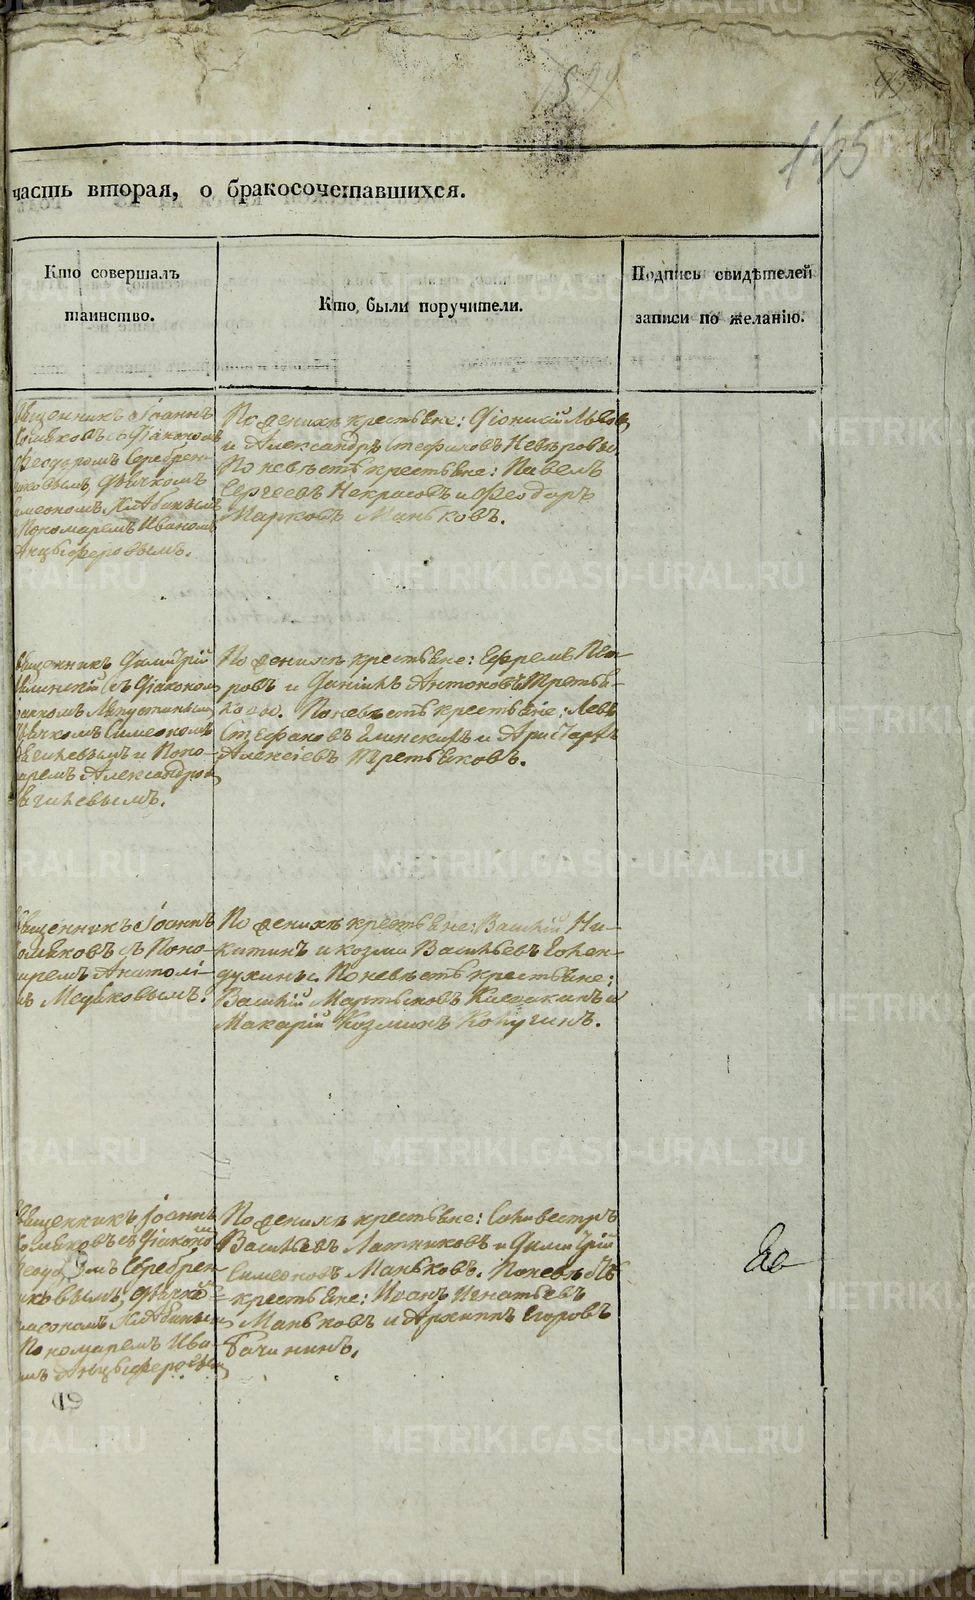 165
часть вторая, о бракосочетавшихся.
Кто совершалъ
таинство.
Кто были поручители.
Подпись свидѣтелей
записи по желанію.
Священникъ Іоаннъ
съ Діакономъ
Феодоромъ Серебрен-
никовымъ, Дьячкомъ
Симеономъ
Пономаремъ Иваномъ
Анцыферовымъ.
По женихѣ крестьяне: Діонисій Львовъ
и Александръ Стефановъ Невѣровы.
По невѣстѣ крестьяне: Павелъ
Сергѣевъ Некрасовъ и Феодоръ
Марковъ Маньковъ.
Священникъ Димитрій
съ Діакономъ
Дьячкомъ Симеономъ
и Поно-
маремъ Александромъ
По женихѣ крестьяне: Ефремъ Пет-
ровъ и Даніилъ Антоновъ Третья-
ковы. По невѣстѣ крестьяне: Левъ
Стефановъ Глинскихъ и Аристархъ
Алексіевъ Третьяковъ.
Священникъ Іоаннъ
съ Поно-
маремъ Анатолі-
емъ
По женихѣ крестьяне: Василій Ни-
китинъ и Козма Васильевъ
По невѣстѣ крестьяне:
Василій Мартыновъ и
Макарій Козминъ
Священникъ Іоаннъ
съ Діакономъ
Феодоромъ Серебрен-
никовымъ, Дьячкомъ
Симеономъ
Пономаремъ Ива-
номъ Анцыферовымъ
По женихѣ крестьяне: Сильвестръ
Васильевъ Латниковъ и Димитрій
Симеоновъ Маньковъ. По невѣстѣ
крестьяне: Иванъ Игнатьевъ
Маньковъ и Архиппъ Егоровъ
Бачининъ.
METRIKI.GASO-URAL.RU